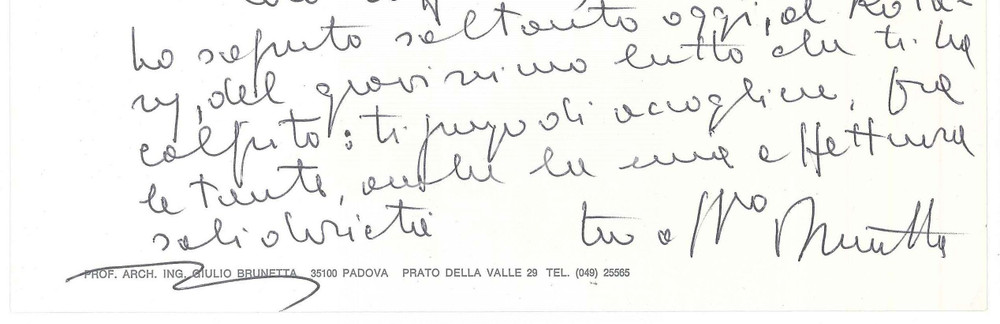 ho saputo soltanto oggi, al Rota-
ry, del gravissimo lutto che ti ha
colpito: ti prego di accogliere, fra
le tante, anche la mia affettuosa
solidarietà
tuo aff.mo Brunetta
PROF. ARCH. ING. GIULIO BRUNETTA 35100 PADOVA PRATO DELLA VALLE 29 TEL. (049) 25565